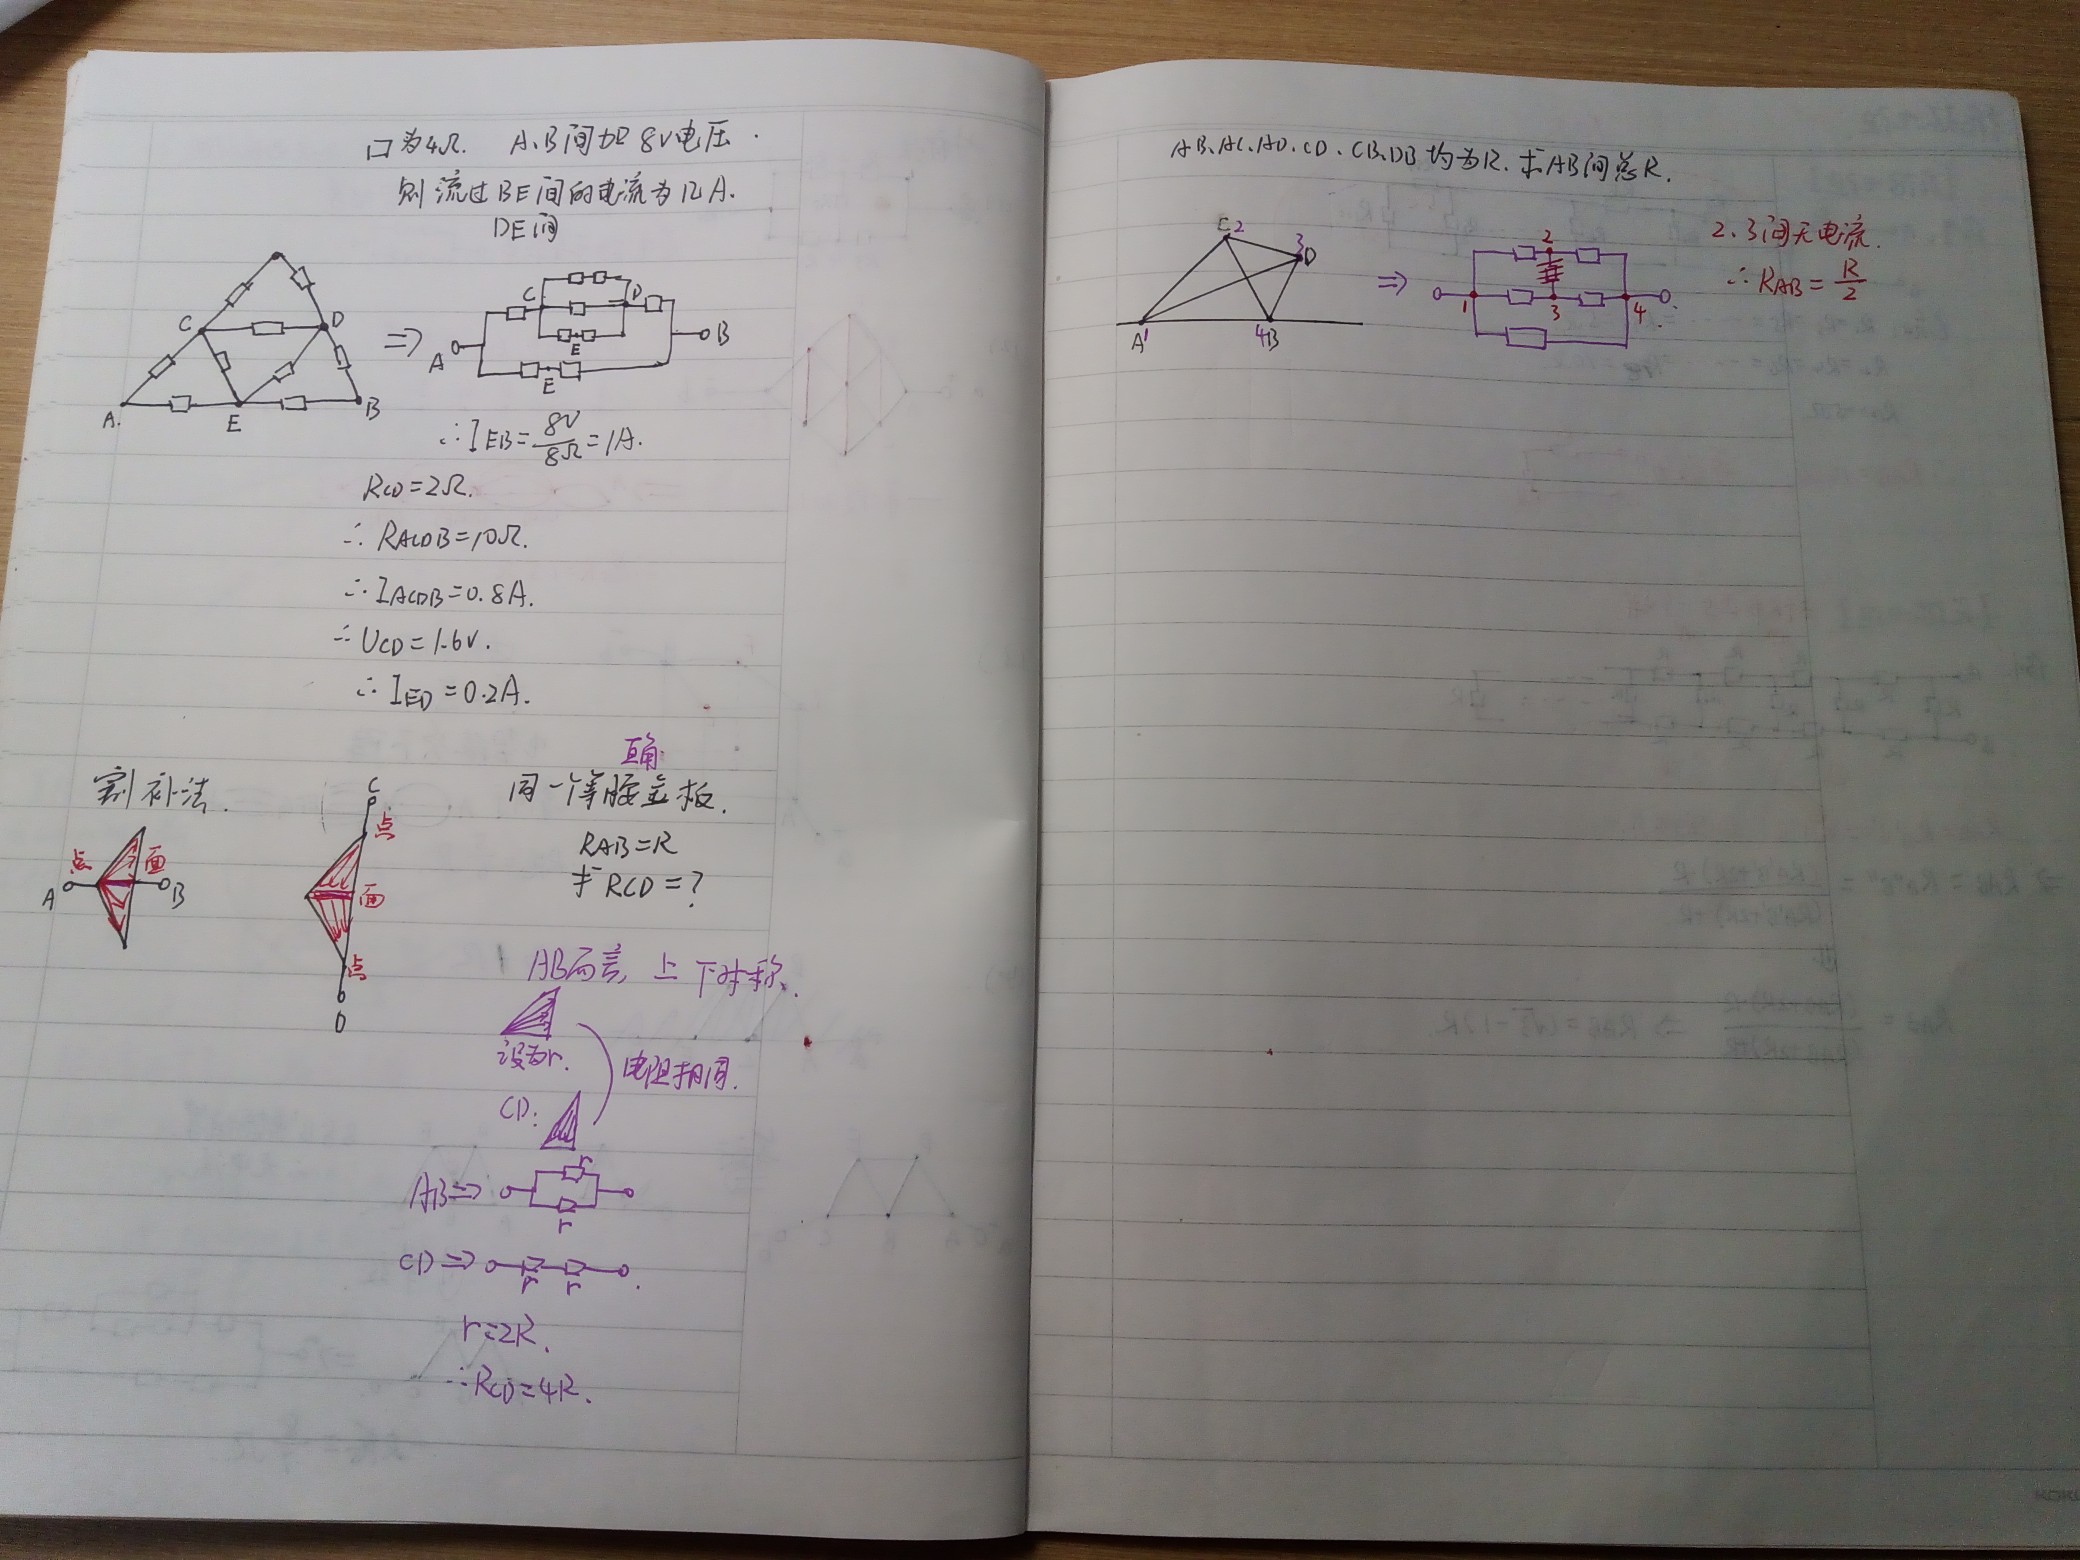 囗为4Ω. A、B间加8V电压.
则流过BE间的电流为12A.
DE间
C D
A. E B
⇒
C D
E
A B
E
∴IEB=8V/8Ω=1A.
RCD=2Ω.
∴RACDB=10Ω.
∴IACDB=0.8A.
∴UCD=1.6V.
∴IED=0.2A.
割补法.
直角
同一个等腰金板.
RAB=R
求RCD=?
点 面
A B
C
点
面
点
D
AB而言,上下对称.
设为r.
电阻相同.
CD:
AB⇒ r
r
CD⇒ r r
r=2R.
∴RCD=4R.
AB、AC、AD、CD、CB、DB均为R.求AB间总R.
C2 3D
A1 4B
⇒
2
1 3 4
2、3间无电流.
∴RAB=R/2